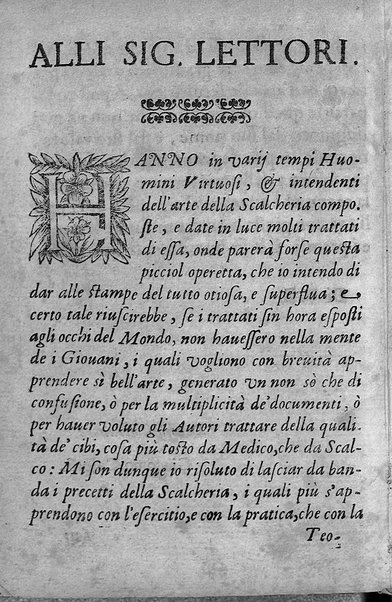 ALLI SIG. LETTORI.
HANNO in varij tempi Huo-
mini Virtuosi, & intendenti
dell'arte della Scalcheria compo-
ste, e date in luce molti trattati
di essa, onde parerà forse questa
picciol operetta, che io intendo di
dar alle stampe del tutto otiosa, e superflua; e
certo tale riuscirebbe, se i trattati sin hora esposti
agli occhi del Mondo, non hauessero nella mente
de i Giouani, i quali vogliono con breuità ap-
prendere sì bell'arte, generato vn non sò che di
confusione, ò per la multiplicità de' documenti, ò
per hauer voluto gli Autori trattare della quali
tà de' cibi, cosa più tosto da Medico, che da Scal-
co: Mi son dunque io risoluto di lasciar da ban-
da i precetti della Scalcheria, i quali più s'ap-
prendono con l'esercitio, e con la pratica, che con la
Teo-